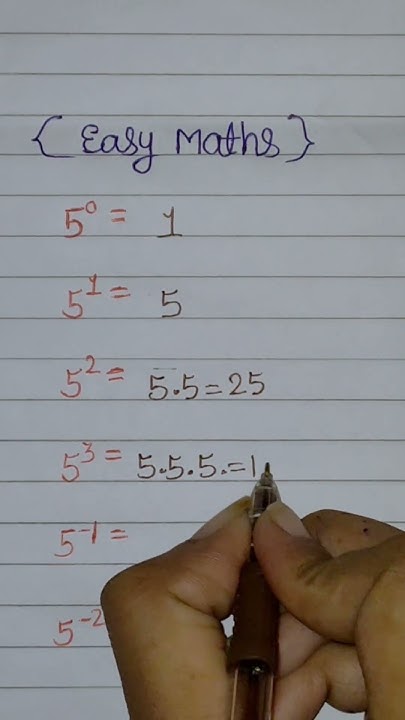 { Easy Maths }
5⁰ = 1
5¹ = 5
5² = 5.5=25
5³ = 5.5.5.=1
5⁻¹ =
5⁻²